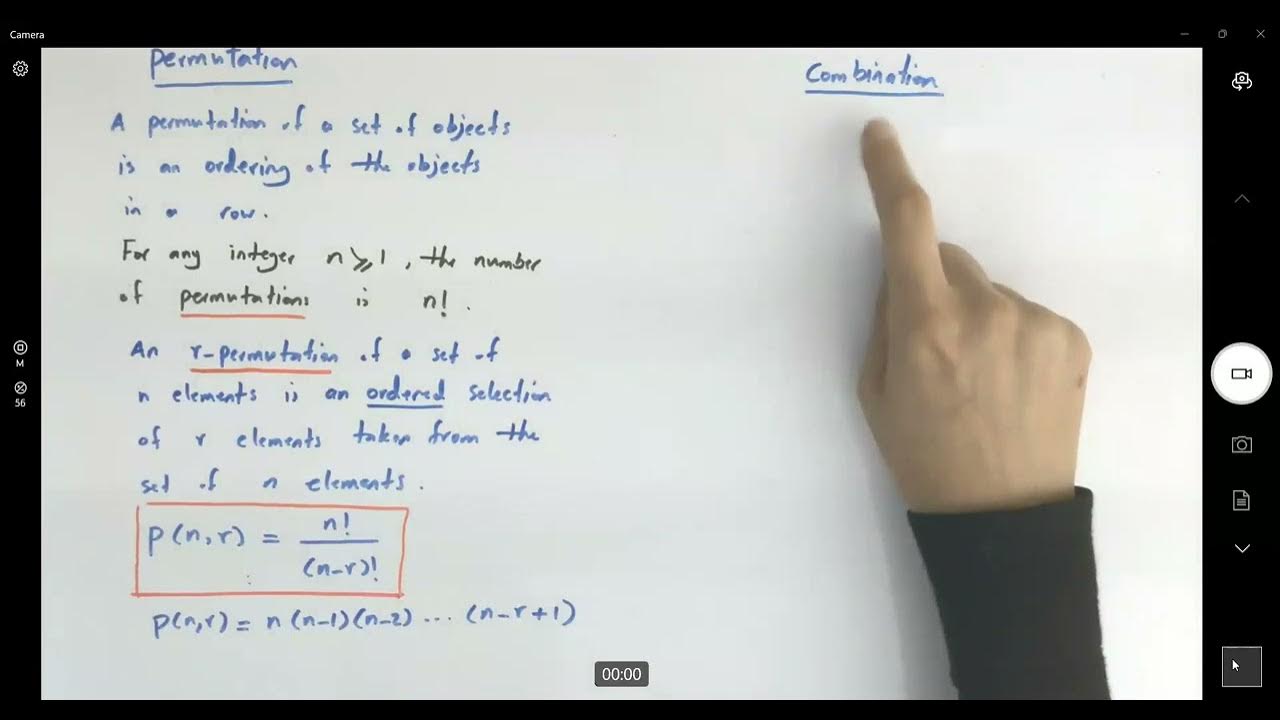 Camera
permutation
A permutation of a set of objects
is an ordering of the objects
in a row.
For any integer n ⩾ 1, the number
of permutations is n!.
An r-permutation of a set of
n elements is an ordered selection
of r elements taken from the
set of n elements.
P(n,r) = n! / (n-r)!
P(n,r) = n(n-1)(n-2) ... (n-r+1)
Combination
M
56
00:00